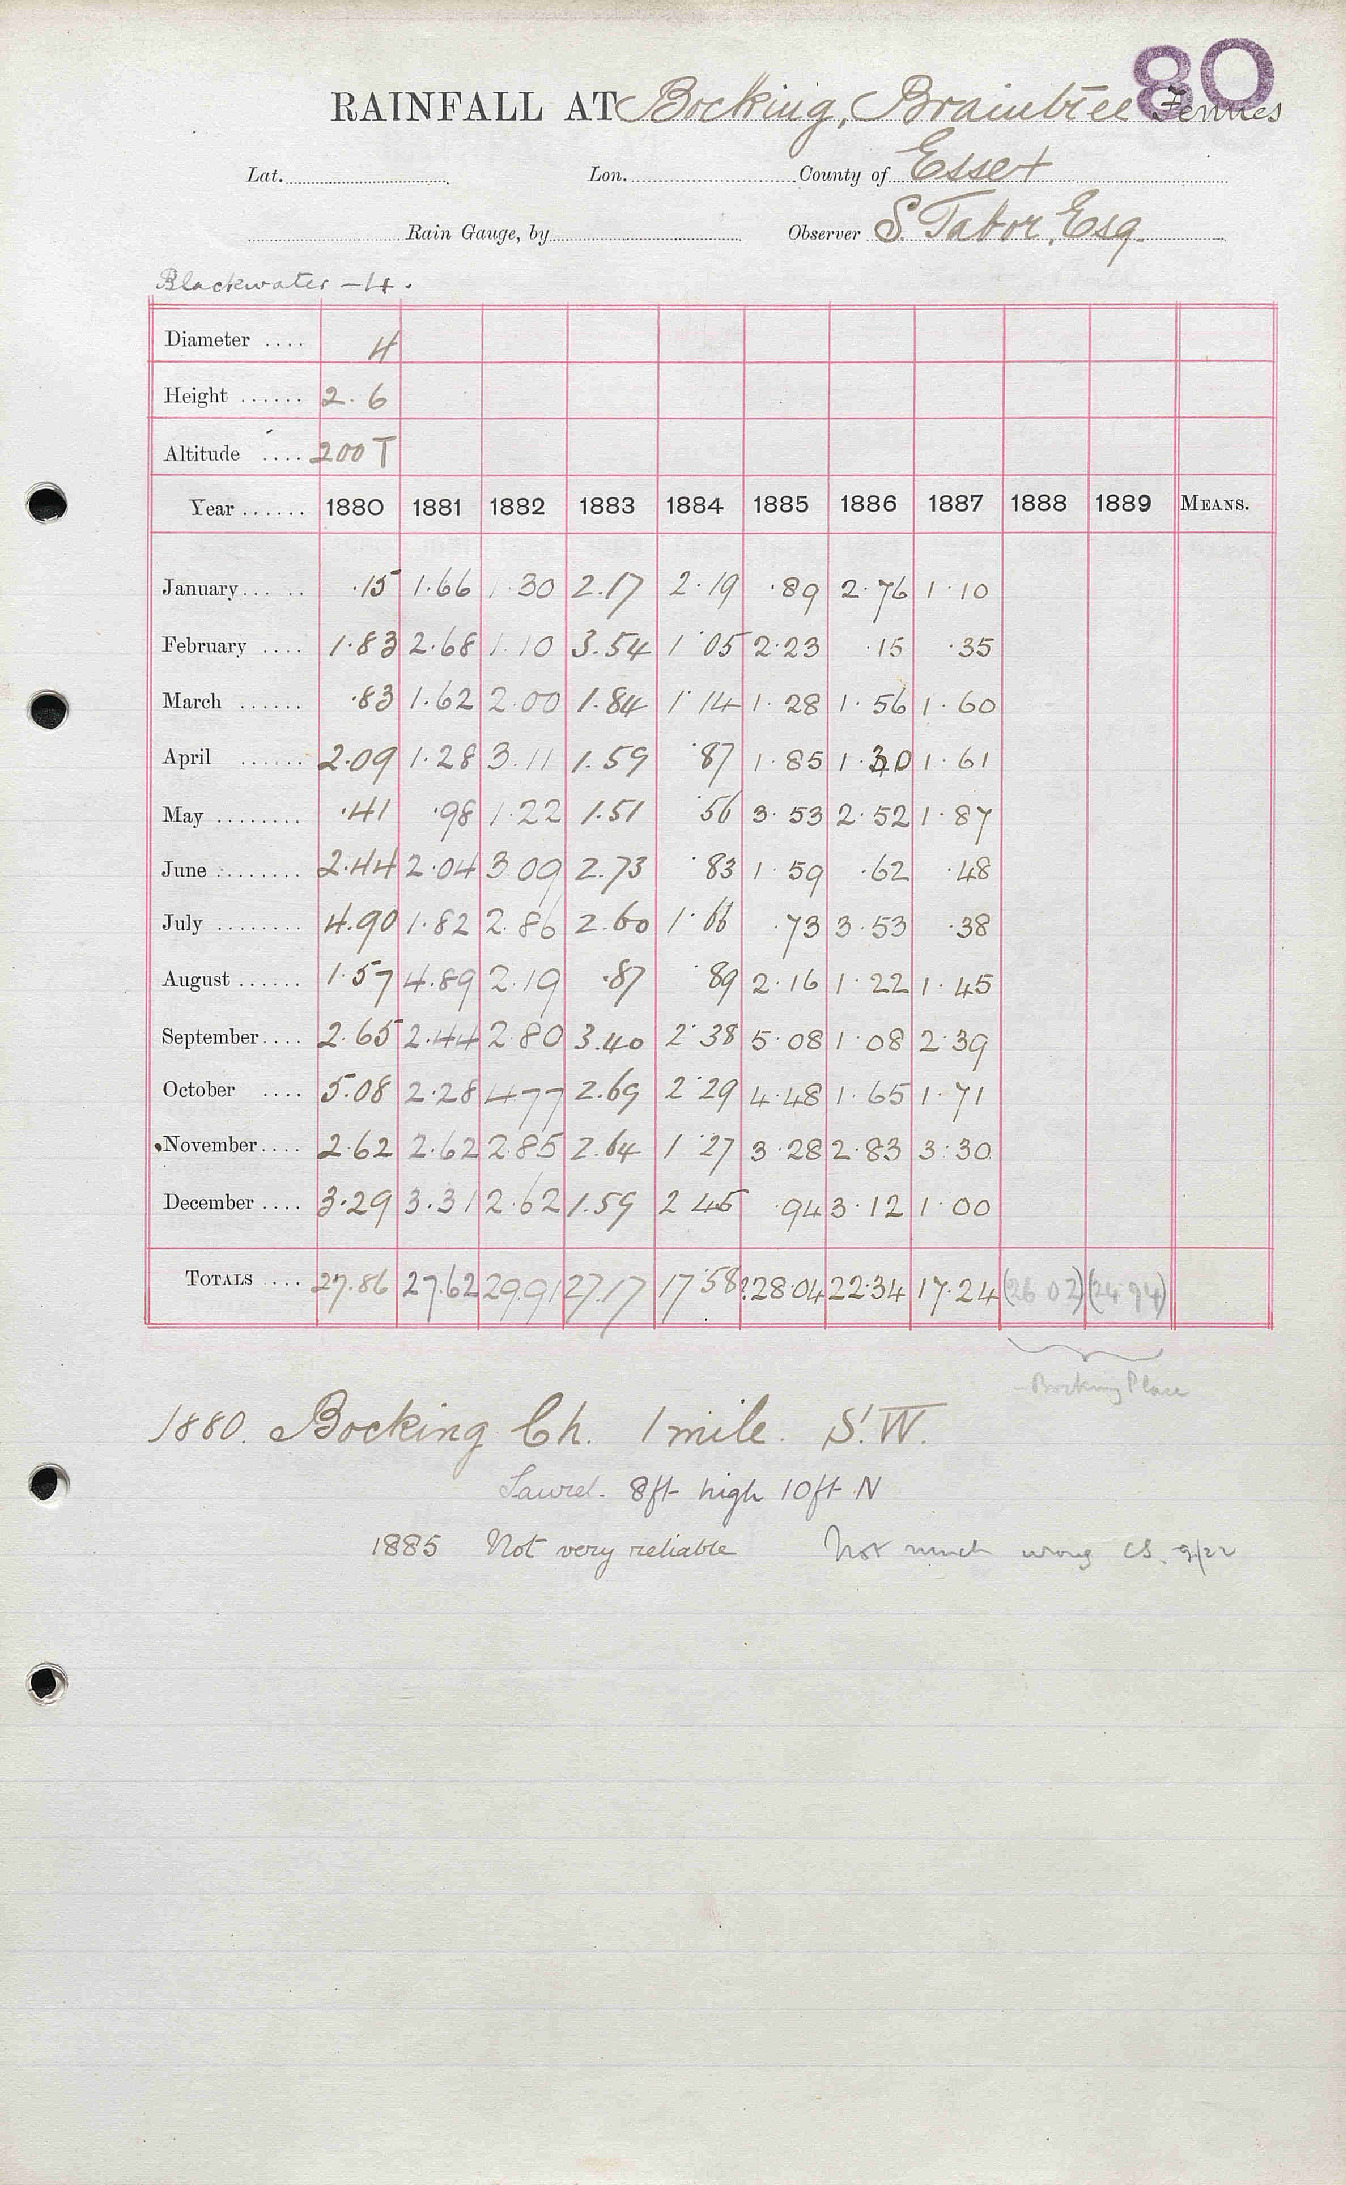 80
RAINFALL AT Bocking, Braintree Fennes
Lat. Lon. County of Essex
Rain Gauge, by Observer S. Tabor, Esq.
Blackwater - 4.
Diameter .... 4
Height ...... 2.6
Altitude .... 200 T
Year ...... 1880 1881 1882 1883 1884 1885 1886 1887 1888 1889 MEANS.
January ...... .15 1.66 1.30 2.17 2.19 .89 2.76 1.10
February .... 1.83 2.68 1.10 3.54 1.05 2.23 .15 .35
March ...... .83 1.62 2.00 1.84 1.14 1.28 1.56 1.60
April ...... 2.09 1.28 3.11 1.59 .87 1.85 1.30 1.61
May ........ .41 .98 1.22 1.51 .56 3.53 2.52 1.87
June ........ 2.44 2.04 3.09 2.73 .83 1.59 .62 .48
July ........ 4.90 1.82 2.86 2.60 1.66 .73 3.53 .38
August ...... 1.57 4.89 2.19 .87 .89 2.16 1.22 1.45
September .... 2.65 2.44 2.80 3.40 2.38 5.08 1.08 2.39
October .... 5.08 2.28 4.77 2.69 2.29 4.48 1.65 1.71
November .... 2.62 2.62 2.85 2.64 1.27 3.28 2.83 3.30
December .... 3.29 3.31 2.62 1.59 2.45 .94 3.12 1.00
TOTALS .... 27.86 27.62 29.91 27.17 17.58 ?28.04 22.34 17.24 (26.02) (24.94)
Bocking Place
1880. Bocking Ch. 1 mile. S.W.
Laurel. 8ft high 10ft N
1885 Not very reliable Not much wrong CS. 9/22